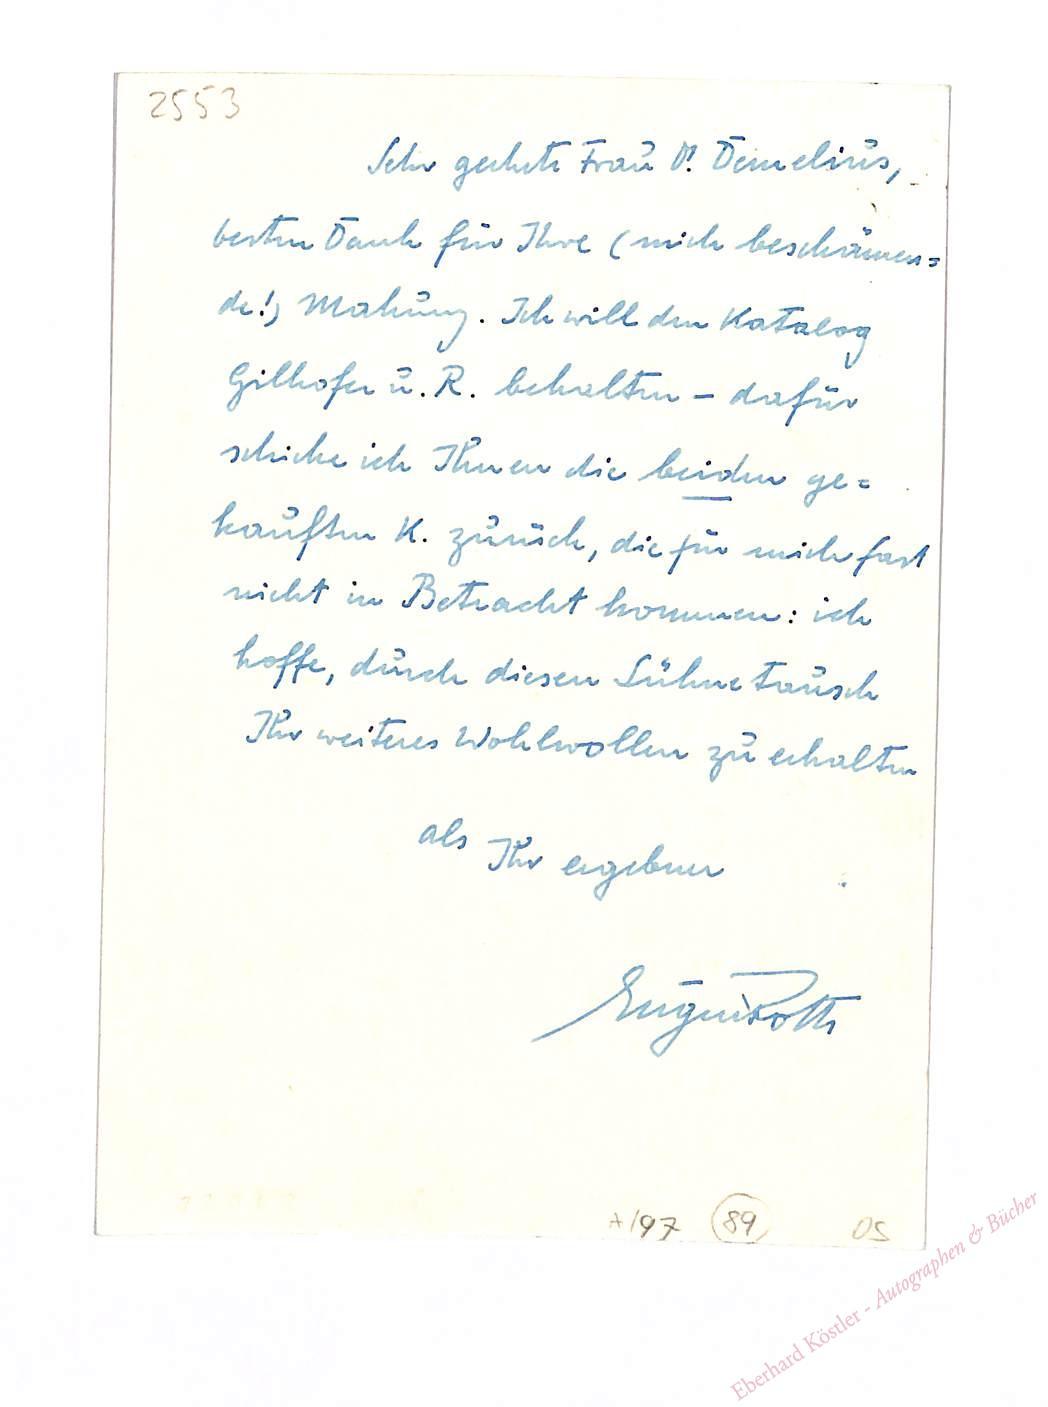 2553
Sehr geehrte Frau Dr. Demelius,
besten Dank für Ihre (mich beschämen=
de!) Mahnung. Ich will den Katalog
Gilhofer u. R. behalten – dafür
schicke ich Ihnen die beiden ge=
kauften K. zurück, die für mich fast
nicht in Betracht kommen: ich
hoffe, durch diesen Sühnetausch
Ihr weiteres Wohlwollen zu erhalten
als Ihr ergebener
Eugen Roth
A/97 89 OS
Eberhard Köstler - Autographen & Bücher